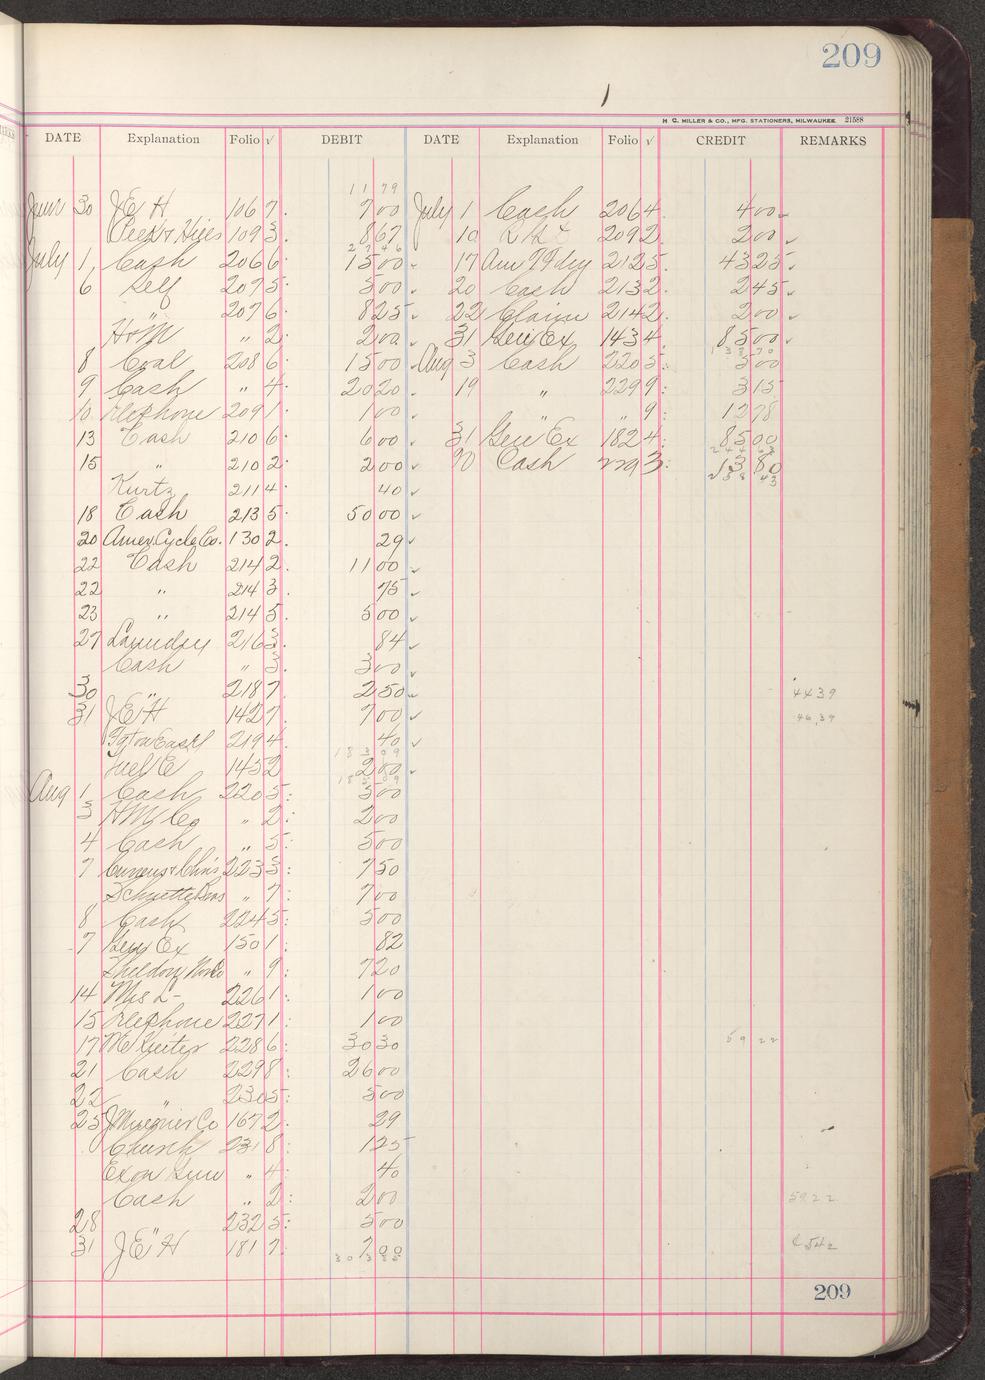 209
H. C. MILLER & CO., MFG. STATIONERS, MILWAUKEE 21588
DATE Explanation Folio √ DEBIT DATE Explanation Folio √ CREDIT REMARKS
11 79
June 30 J E H 106 7 7 00 July 1 Cash 206 4 4 00
109 3 8 67 10 209 2 2 00
July 1 Cash 206 6 15 00 17 212 5 43 25
6 Self 207 5 5 00 20 Cash 213 2 2 45
" 207 6 8 25 22 Claim 214 2 2 00
H & M " 2 2 00 31 Gen Ex 143 4 85 00
8 Coal 208 6 15 00 Aug 3 Cash 220 5 5 00
9 Cash " 4 20 20 19 " 229 9 3 15
10 Telephone 209 1 1 00 " " 9 12 78
13 Cash 210 6 6 00 31 Gen Ex 182 4 85 00
15 " 210 2 2 00 Cash 3 13 80
Kurtz 211 4 40
18 Cash 213 5 50 00
20 Amer. Cycle Co. 130 2 29
22 Cash 214 2 11 00
22 " 214 3 75
23 " 214 5 5 00
27 Laundry 216 3 84
Cash " 3 3 00
30 " 218 7 2 50 44 39
31 J E H 142 7 7 00 46.39
219 4 40
183 09
Fuel E 145 2 2 00
Aug 1 Cash 220 5 5 00
3 H M Co " 2 2 00
4 Cash " 5 5 00
7 223 3 7 50
Schuette Bros " 7 7 00
8 Cash 224 5 5 00
7 Gen Ex 150 1 82
Sheldon " 9 7 20
14 Mis L- 226 1 1 00
15 Telephone 227 1 1 00
17 228 6 30 30 59 22
21 Cash 229 8 26 00
22 " 230 5 5 00
25 167 2 29
Church 231 8 1 25
" 4 40
Cash " 2 2 00 59.22
28 " 232 5 5 00
31 J E H 181 7 7 00
209